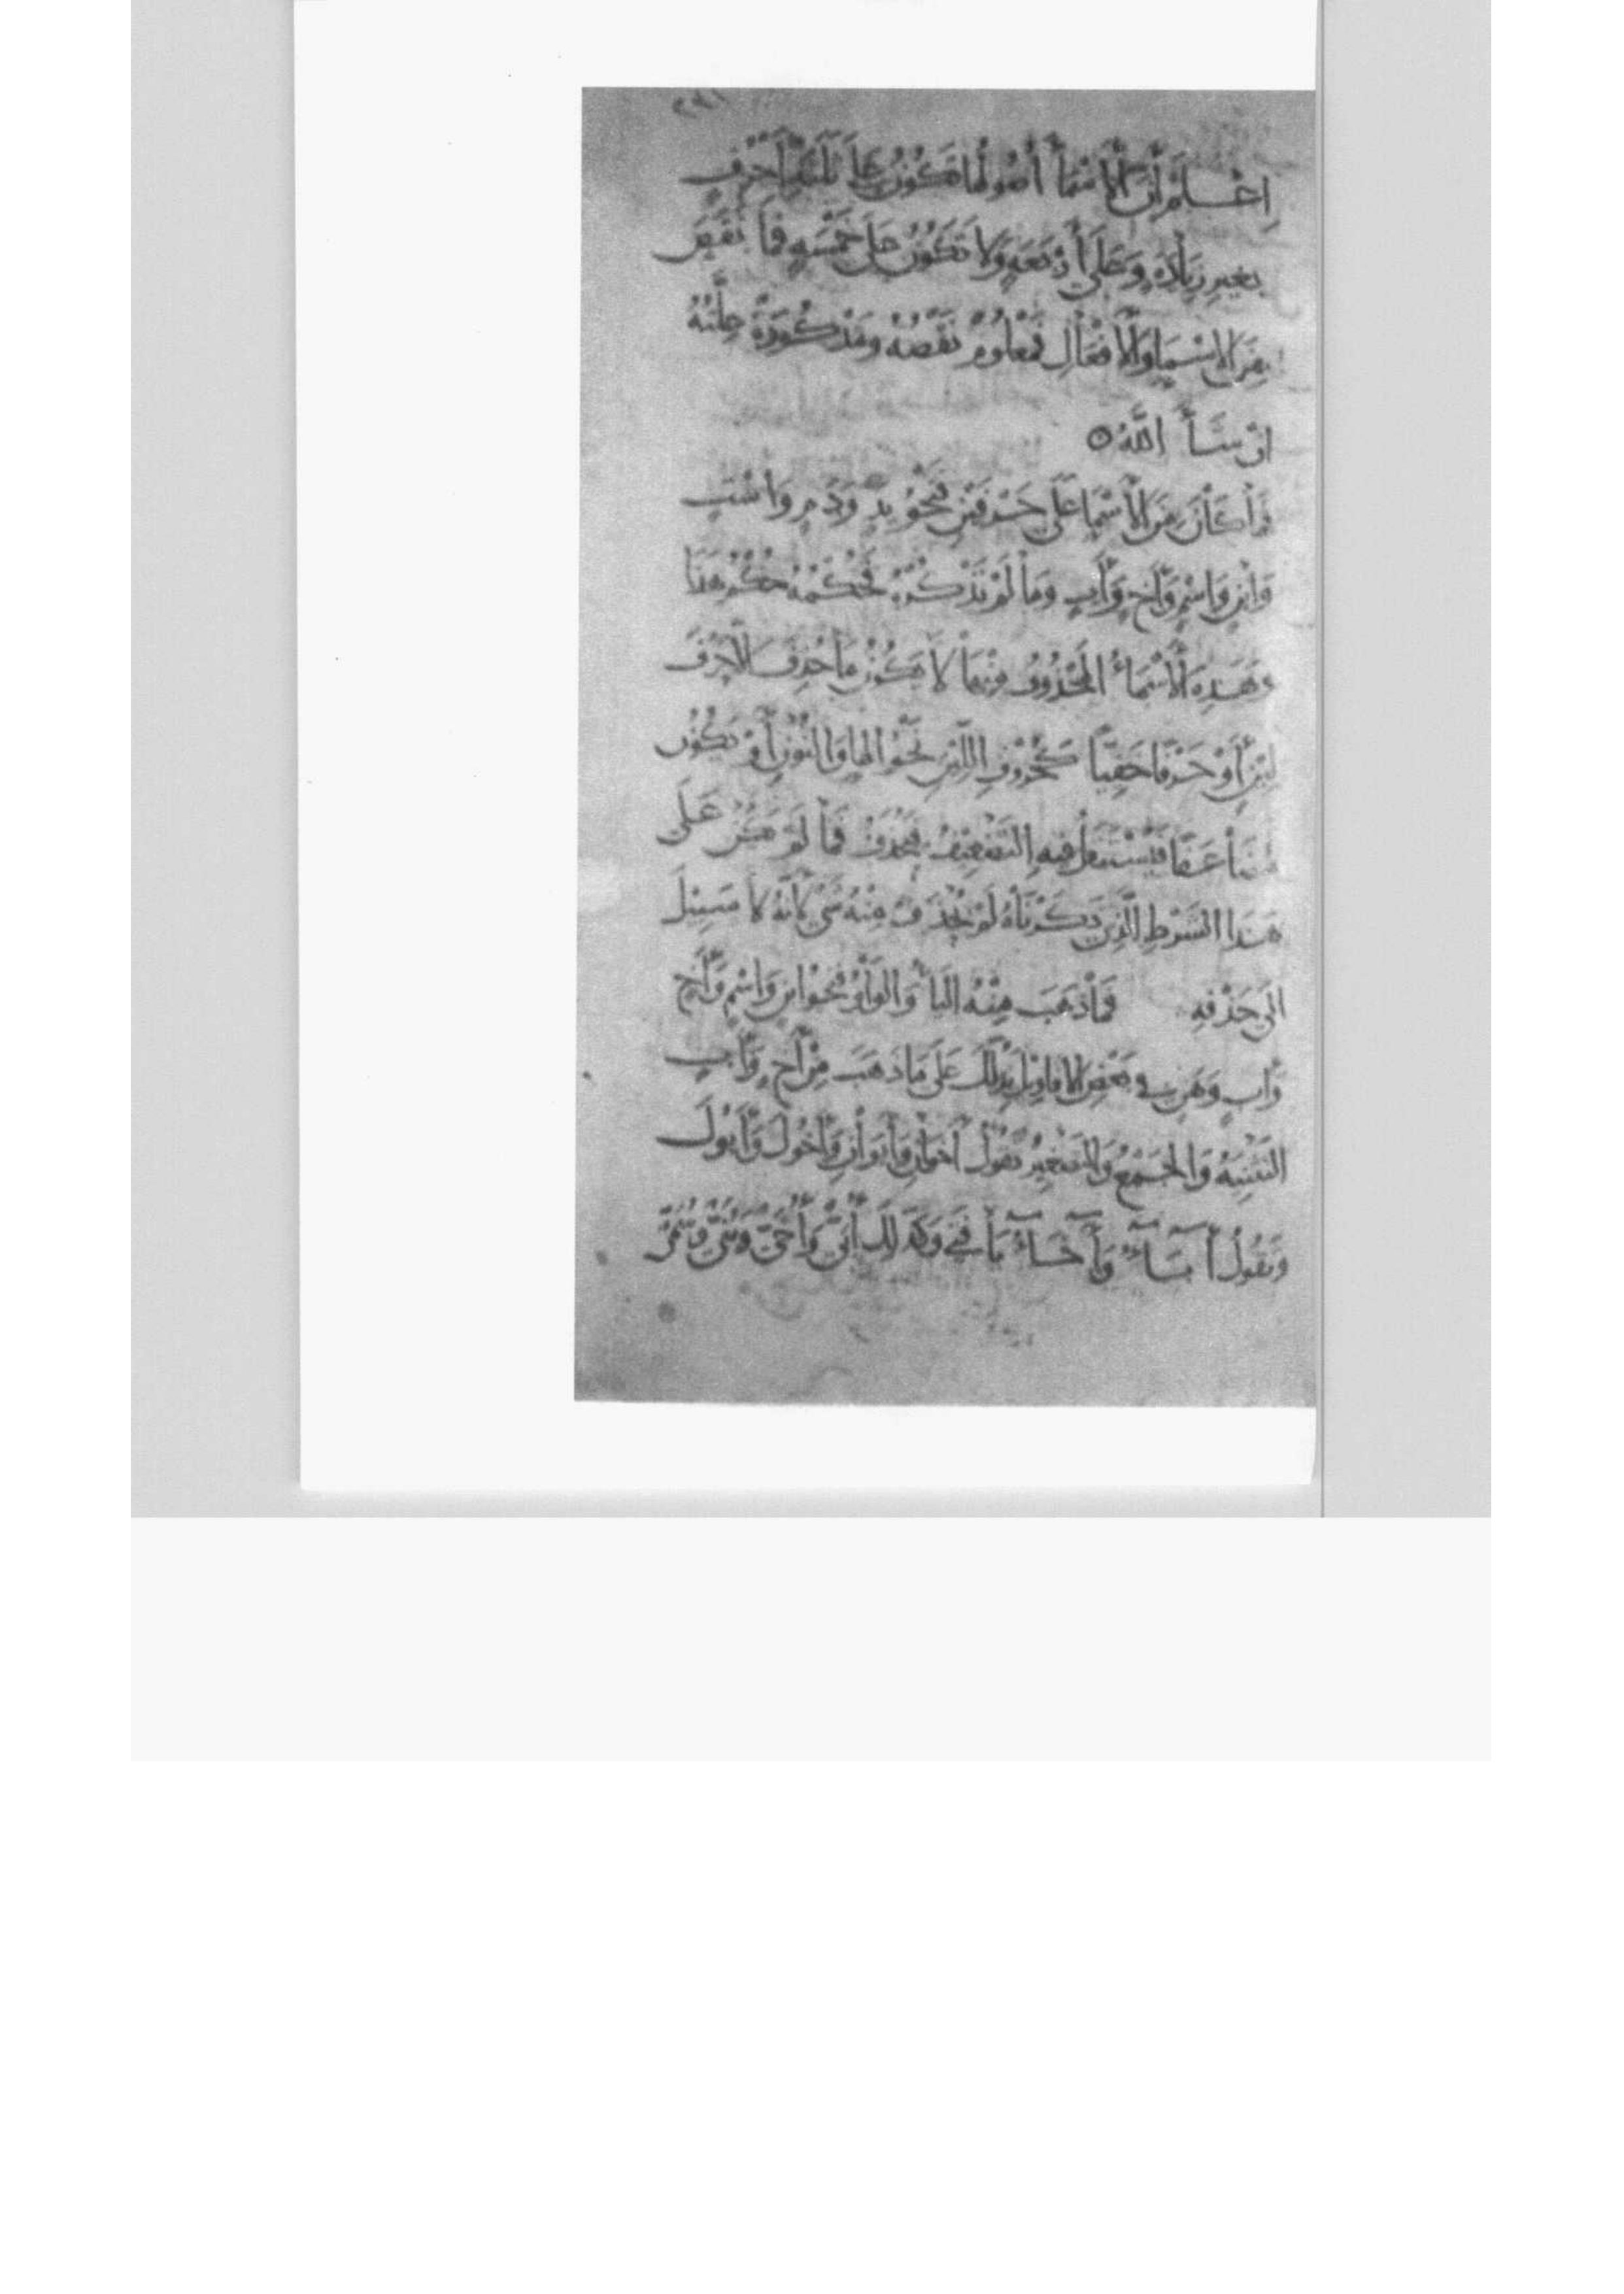 اِعْلَمْ أَنَّ الْأَسْمَاءَ أُصُولُهَا تَكُونُ عَلَى ثَلَثَةِ أَحْرُفٍ
بِغَيْرِ زِيَادَةٍ وَعَلَى أَرْبَعَةٍ وَلَا تَكُونُ عَلَى خَمْسَةٍ فَمَا نَقَصَ
مِنَ الْأَسْمَاءِ وَالْأَفْعَالِ فَمَعْلُومٌ نَقْصُهُ وَمَذْكُورَةٌ عِلَّتُهُ
إِنْ شَاءَ اللَّهُ
مَا كَانَ مِنَ الْأَسْمَاءِ عَلَى حَرْفَيْنِ فَنَحْوُ يَدٍ وَدَمٍ وَاسْتٍ
وَابْنٍ وَاسْمٍ وَأَخٍ وَأَبٍ وَمَا لَمْ نَذْكُرْهُ فَحُكْمُهُ حُكْمُ هَذَا
وَهَذِهِ الْأَسْمَاءُ الْمَحْذُوفُ مِنْهَا لَا يَكُونُ مَا حُذِفَ إِلَّا حَرْفَ
لِينٍ أَوْ حَرْفًا خَفِيًّا كَحُرُوفِ اللِّينِ نَحْوُ الْهَاءِ وَالنُّونِ أَوْ يَكُونُ
مُضَاعَفًا فَيُسْتَثْقَلُ فِيهِ التَّضْعِيفُ فَيُحْذَفُ فَمَا لَمْ يَكُنْ عَلَى
هَذَا الشَّرْطِ الَّذِي ذَكَرْنَاهُ لَمْ يُحْذَفْ مِنْهُ شَيْءٌ لِأَنَّهُ لَا سَبِيلَ
إِلَى حَذْفِهِ فَمَا ذَهَبَ مِنْهُ الْيَاءُ وَالْوَاوُ فَنَحْوُ ابْنٍ وَاسْمٍ وَأَخٍ
وَأَبٍ وَهَنٍ فِي بَعْضِ الْأَقَاوِيلِ يَدُلُّكَ عَلَى مَا ذَهَبَ مِنْ أَخٍ وَأَبٍ
التَّثْنِيَةُ وَالْجَمْعُ وَالتَّصْغِيرُ تَقُولُ أَخَوَانِ وَأَبَوَانِ وَأَخُوكَ وَأَبُوكَ
وَتَقُولُ آبَاءٌ وَآخَاءٌ يَا فَتَى وَكَذَلِكَ أُبَيٌّ وَأُخَيٌّ وَبُنَيٌّ